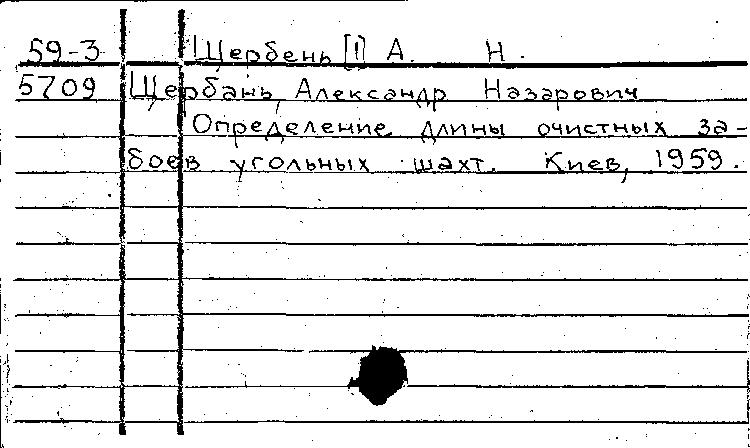 59-3 Щербень [!] А. Н.
5709 Щербань, Александр Назарович
Определение длины очистных за-
боев угольных шахт. Киев, 1959.